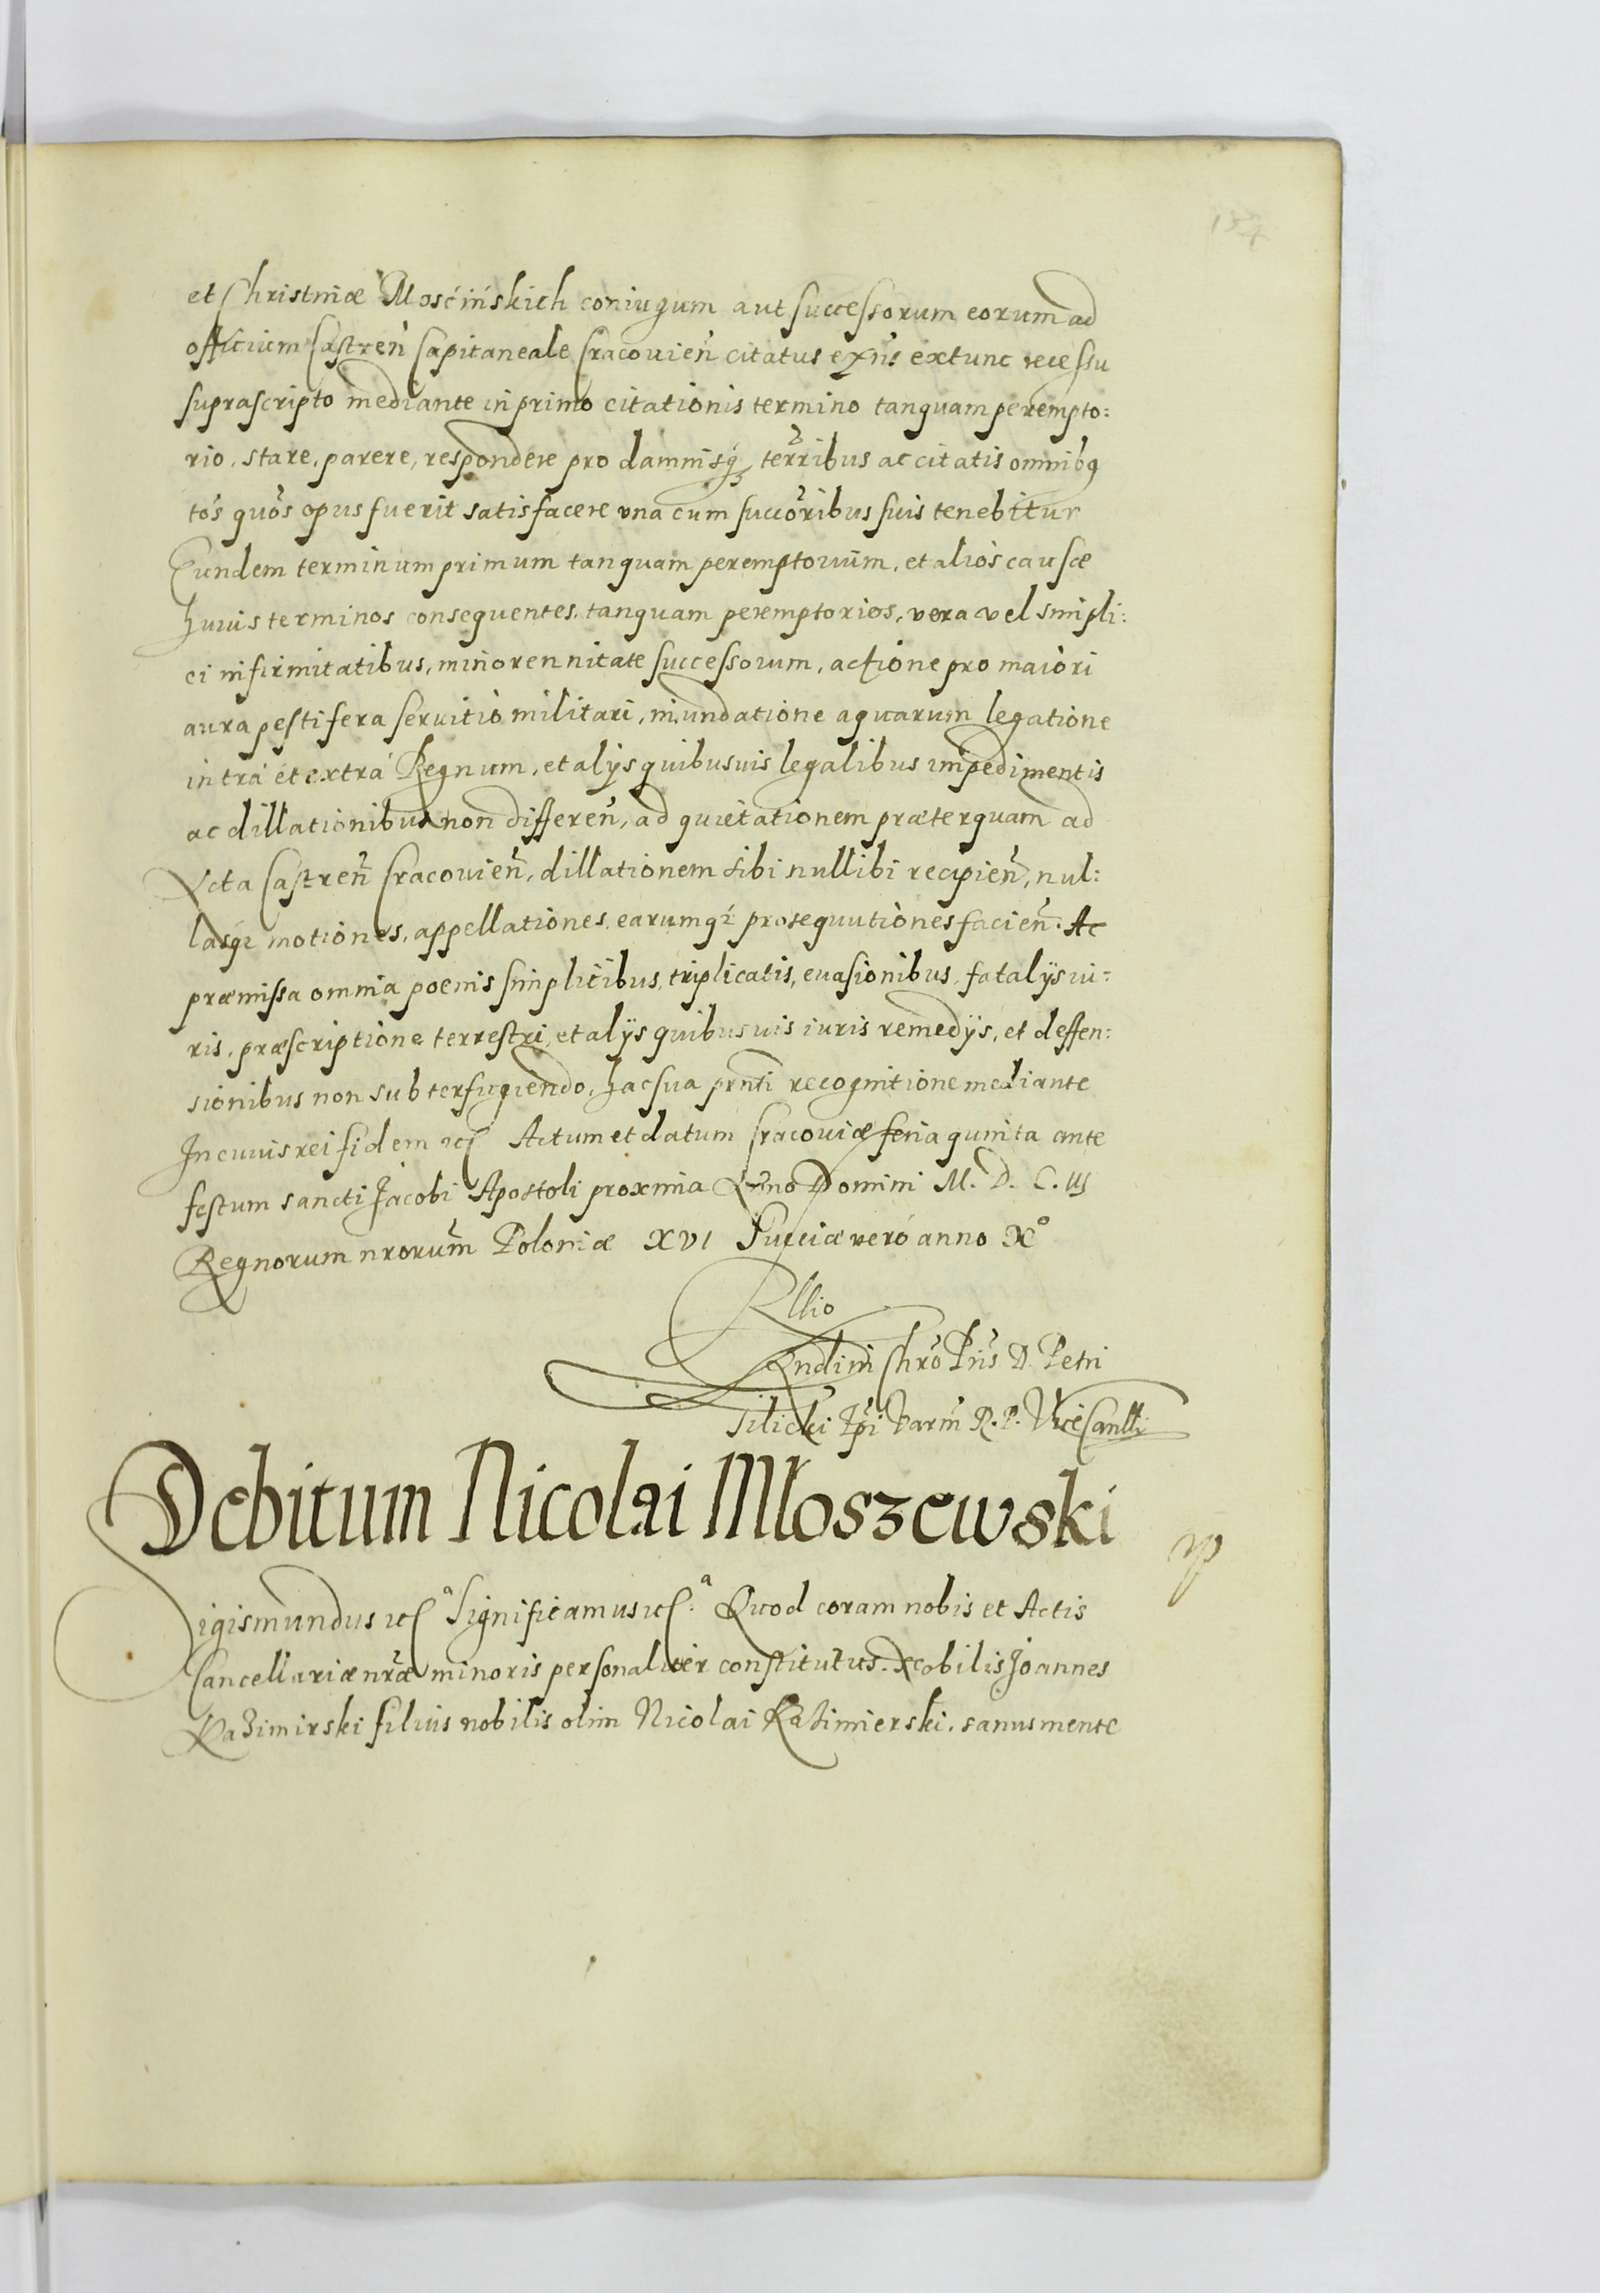 et Christinæ Mośćińskich coniugum aut successorum eorum ad
officium Castreñ Capitaneale Cracovień citatus extunc recessu
suprascripto mediante in primo citationis termino tanquam perempto:
rio, stare, parere, respondere pro damnisq terribus ac citatis omnibq
tos quos opus fuerit satisfacere una cum succoribus suis tenebitur
Eundem terminum primum tanquam peremptorium, et alios causæ
huius terminos consequentes, tanquam peremptorios, vera vel simpli:
ci infirmitatibus, minorennitate successorum, actione pro maiori
aura pestifera servitio militari, inundatione aquarum legatione
intrà et extrá Regnum, et alÿs quibusuis legalibus impedimentis
ac dillationibus non differeñ, ad quietationem præterquam ad
Acta Castreñ Cracovieñ, dillationem sibi nullibi recipieñ, nul:
lasq3 motiones, appellationes, earumq3 prosequutiones facieñ. Ac
præmissa omnia poenis simplicibus, triplicatis, euasionibus, fatalÿs iu:
ris, præscriptione terrestri, et alÿs quibusuis iuris remedÿs, et deffen:
sionibus non subterfugiendo, hac sua pñti recognitione mediante
In cuius rei fidem etc Actum et datum Cracoviæ feria quinta ante
festum sancti Jacobi Apostoli proxima Anno Domini M. D. C. iij
Regnorum nrorum Poloniæ XVI Sueciæ veró anno X°
Rllio
Rndimi Chro Pris D. Petri
Tilicki Epi Varm R. P. ViceCanllr
Debitum Nicolai Młoszewski
Sigismundus etc a Significamus etc a Quod coram nobis et Actis
Cancellariæ nræ minoris personaliter constitutus. Nobilis Joannes
Kazimirski filius nobilis olim Nicolai Kazimierski, sanus mente